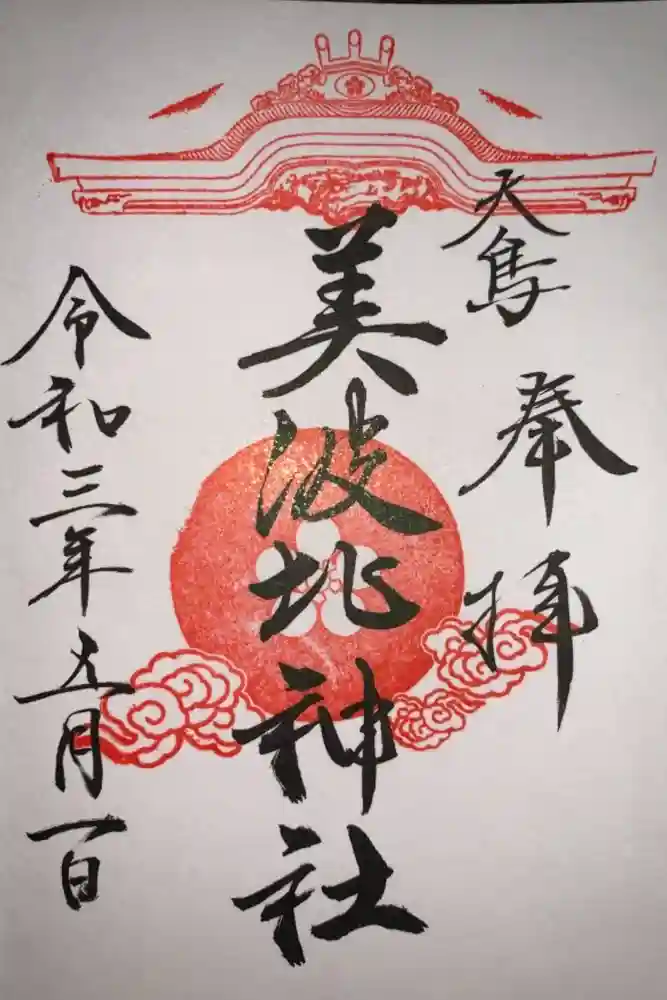 奉拝
美波比神社
令和三年五月一日